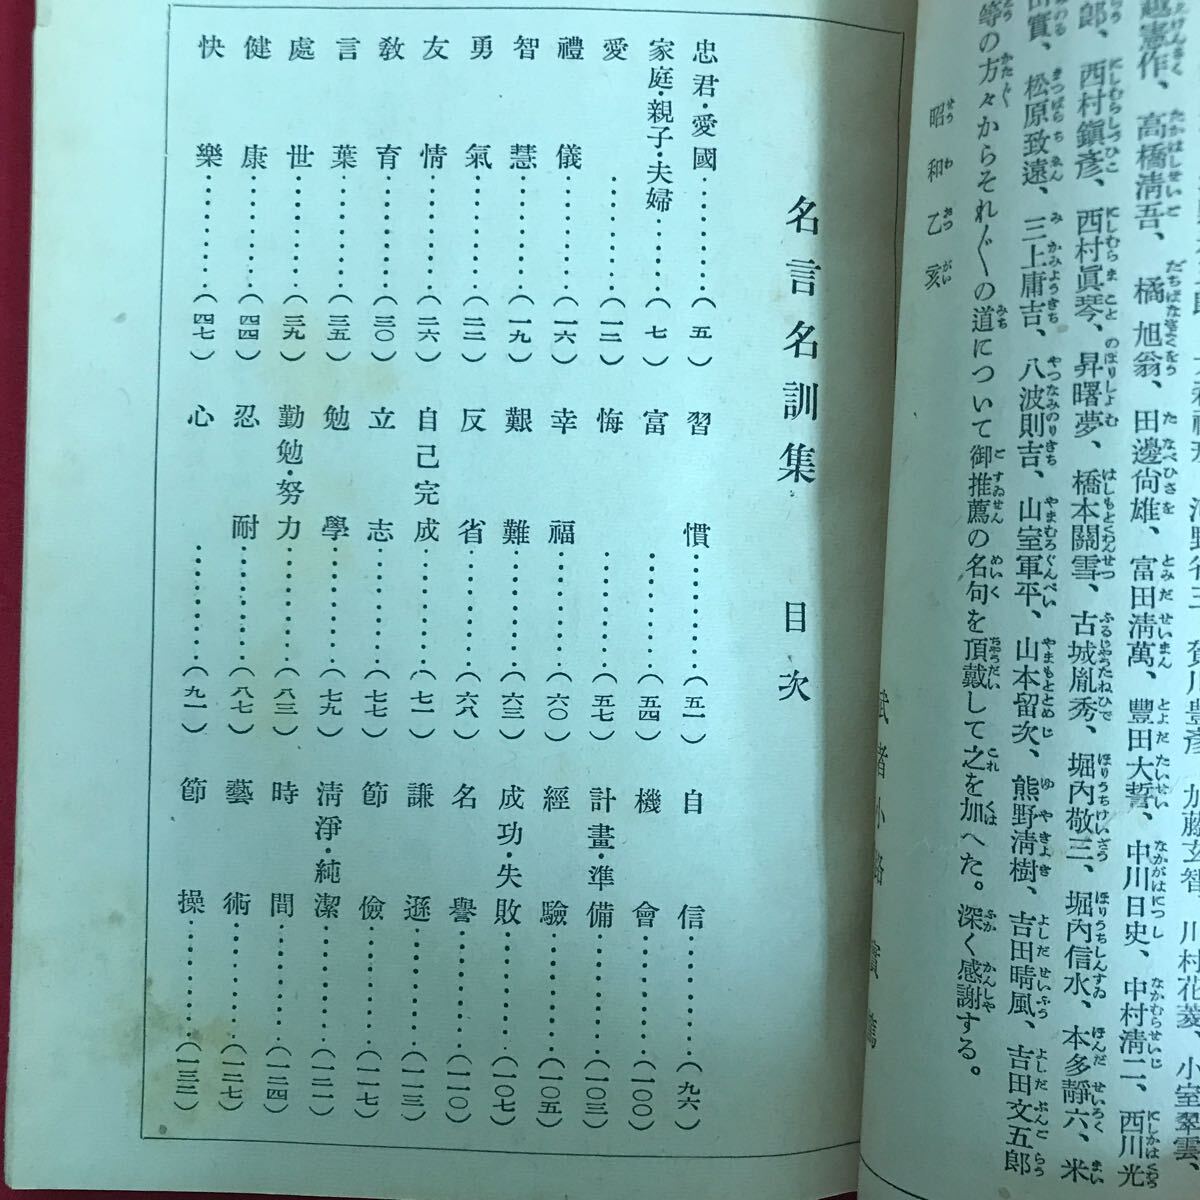 越憲作、高橋淸吾、橘旭翁、田邊尙雄、富田淸萬、豐田大誓、中川日史、中村淸二、西川光
郎、西村鎭彥、西村眞琴、昇曙夢、橋本關雪、古城胤秀、堀內敬三、堀內信水、本多靜六、米
田實、松原致遠、三上庸吉、八波則吉、山室軍平、山本留次、熊野淸樹、吉田晴風、吉田文五郞
等の方々からそれ〴〵の道について御推薦の名句を頂戴して之を加へた。深く感謝する。
昭和乙亥
武者小路實篤
名言名訓集 目次
忠君・愛國…………(五)
家庭・親子・夫婦…………(七)
愛…………(一二)
禮儀…………(一六)
智慧…………(一九)
勇氣…………(二二)
友情…………(二六)
敎育…………(三〇)
言葉…………(三五)
處世…………(三九)
健康…………(四四)
快樂…………(四七)
習慣…………(五一)
富…………(五四)
悔…………(五七)
幸福…………(六〇)
艱難…………(六三)
反省…………(六八)
自己完成…………(七一)
立志…………(七七)
勉學…………(七九)
勤勉・努力…………(八三)
忍耐…………(八七)
心…………(九一)
自信…………(九六)
機會…………(一〇〇)
計畫・準備…………(一〇三)
經驗…………(一〇五)
成功・失敗…………(一〇七)
名譽…………(一一〇)
謙遜…………(一一三)
節儉…………(一一七)
淸淨・純潔…………(一二一)
時間…………(一二四)
藝術…………(一二七)
節操…………(一三二)